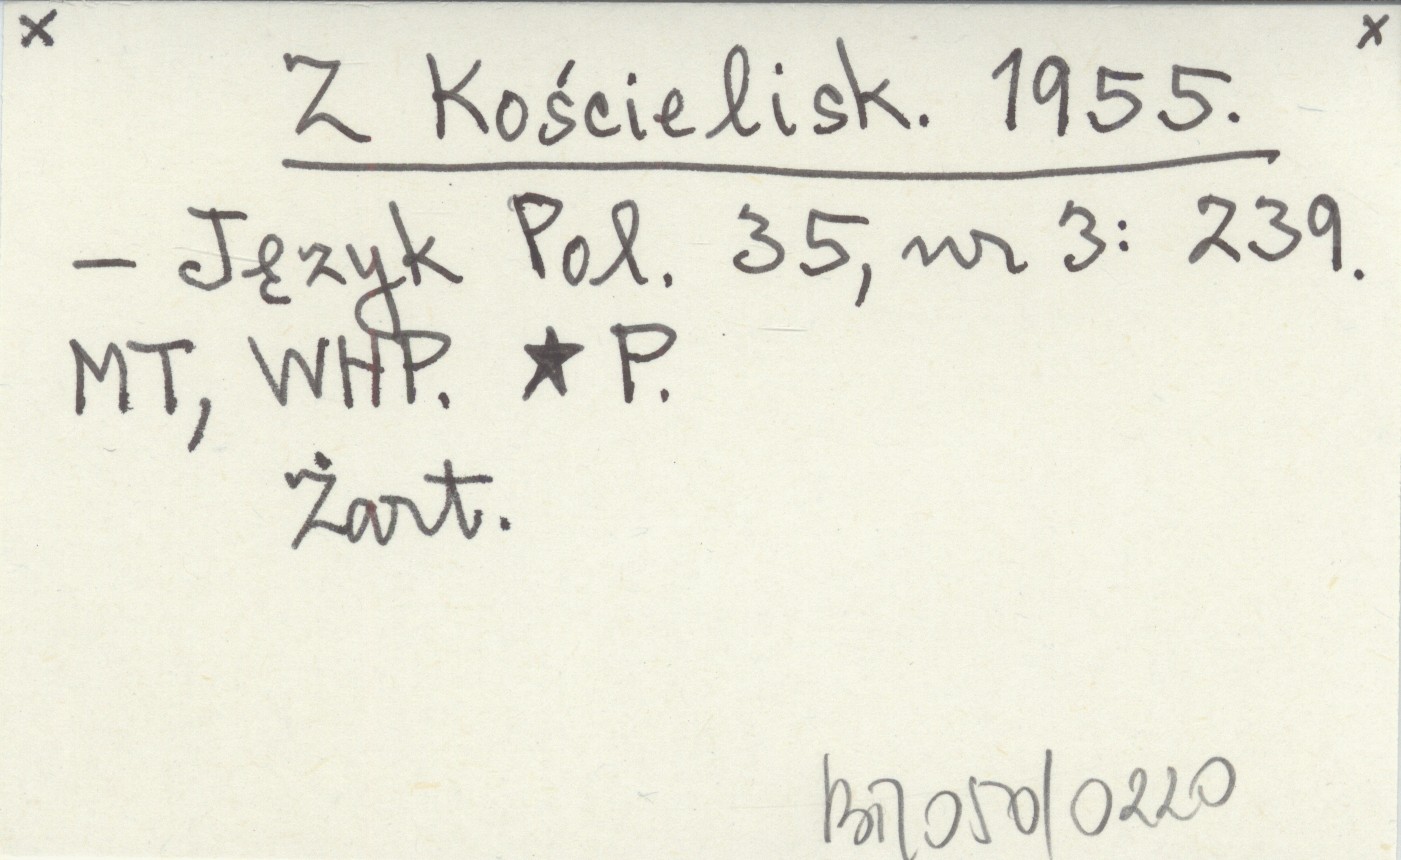 x x
Z Kościelisk. 1955.
– Język Pol. 35, nr 3: 239.
MT, WHP. ★ P.
Żart.
050/0220